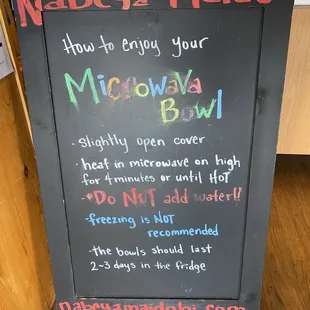 How to enjoy your
MicrowaVa
Bowl
- slightly open cover
- heat in microwave on high
for 4 minutes or until HOT
- *Do NOT add water!!
- freezing is NOT
recommended
- the bowls should last
2-3 days in the fridge